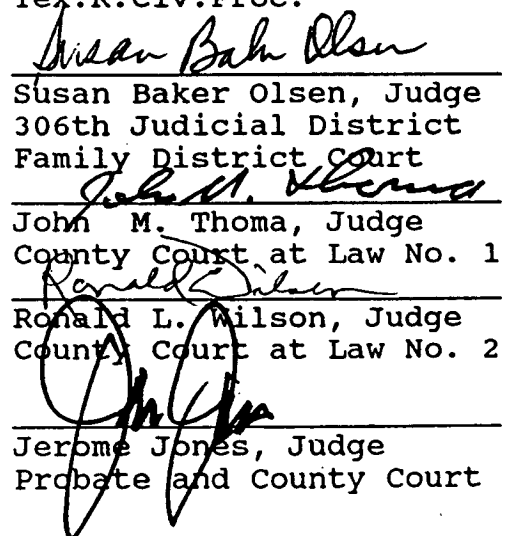 Tex.R.Civ.Proc.
Susan Baker Olsen
Susan Baker Olsen, Judge
306th Judicial District
Family District Court
John M. Thoma
John M. Thoma, Judge
County Court at Law No. 1
Ronald L. Wilson
Ronald L. Wilson, Judge
County Court at Law No. 2
Jerome Jones, Judge
Probate and County Court